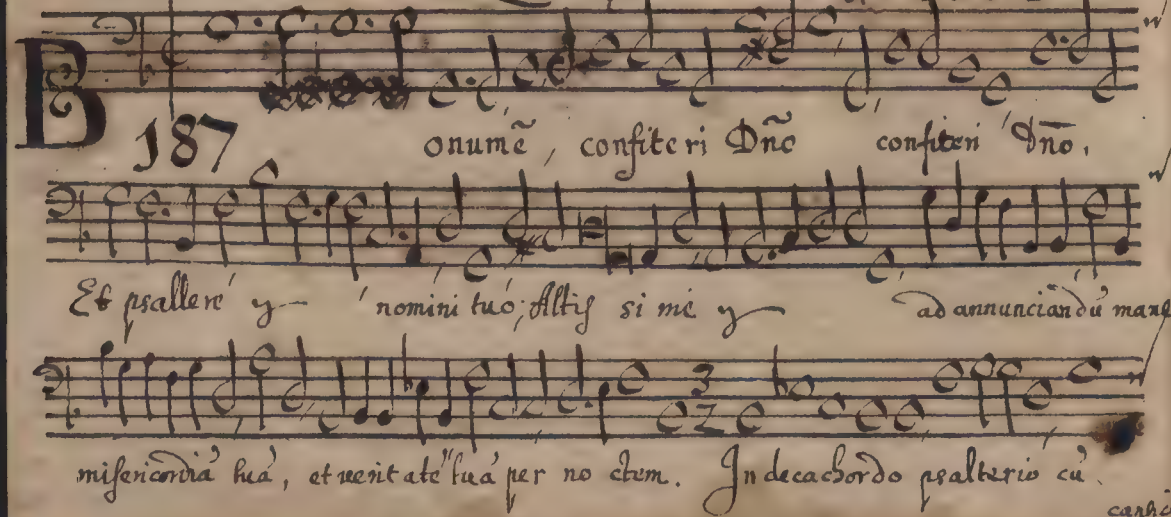 B onumẽ, confiteri Dñō confiteri Dñō,
187
Et psallere y nomini tuo; Altis si me y ad annunciandũ mane
3
2
misericordiã tuã, et veritatẽ tuã per no ctem. In decachordo psalterio cũ